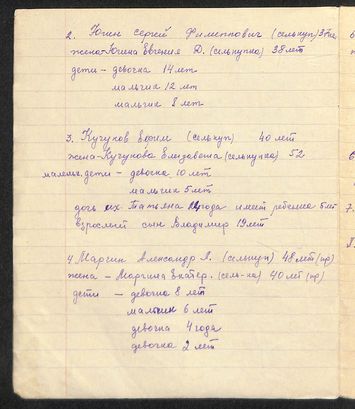 2. Юнин Сергей Филиппович (селькуп) 37 лет
жена-Юнина Евгения Д. (селькупка) 38 лет
дети - девочка 14 лет
мальчик 12 лет
мальчик 8 лет
3. Кучуков Ефим (селькуп) 40 лет
жена-Кучукова Елизовета (селькупка) 52
малень. дети - девочка 10 лет
мальчик 5 лет
дочь их Татьяна имеет ребенка 5 лет
взрослый сын Владимир 19 лет
4. Маргин Александр А. (селькуп) 48 лет (пр)
жена - Маргина Екатер. (сель-ка) 40 лет (пр)
дети - девочка 8 лет
мальчик 6 лет
девочка 4 года
девочка 2 лет
6
7.
8.